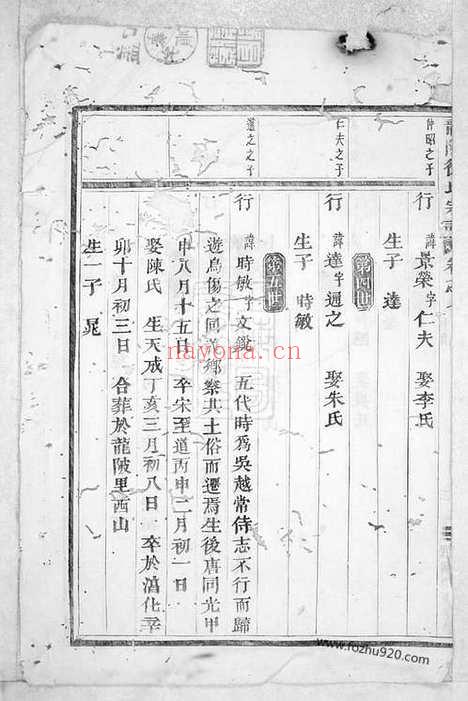 仲昭之子
行 諱景榮字仁夫 娶李氏
生子 達
第四世
仁夫之子
行 諱達字遹之 娶朱氏
生子 時敏
第五世
遹之之子
行 諱時敏字文銳 五代時爲吳越常侍志不行而歸
遊烏傷之同義鄉察其土俗而遷焉生後唐同光甲
申八月十五日 卒宋至道丙申二月初一日
娶陳氏 生天成丁亥三月初八日 卒於淳化辛
卯十月初三日 合葬於龍陂里西山
生一子 晃
nayona.cn
www.fozhu920.com